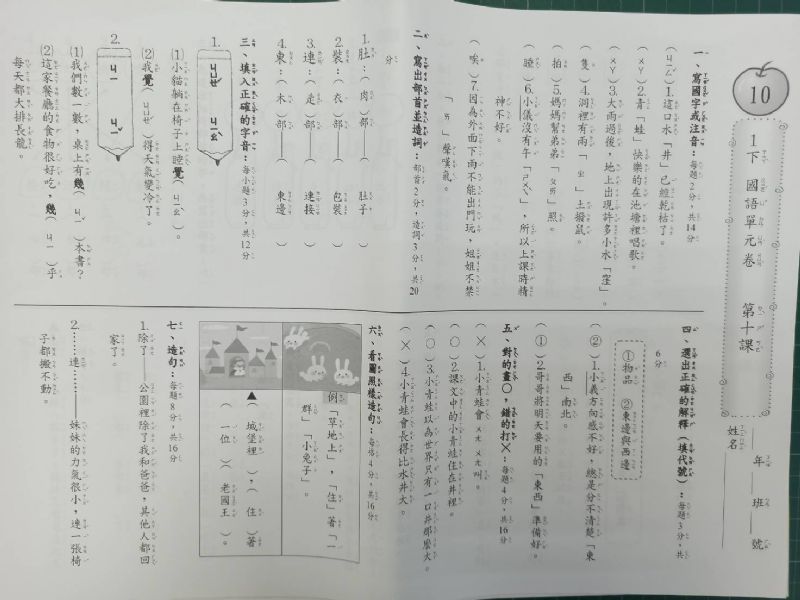 10
1下 國語單元卷 第十課
年 班 號
姓名
一、寫國字或注音：每題2分，共14分
（ㄐㄧㄥˇ）1.這口水「井」已經乾枯了。
（ㄨㄚ）2.青「蛙」快樂的在池塘裡唱歌。
（ㄨㄚ）3.大雨過後，地上出現許多小水「窪」。
（隻）4.洞裡有兩「ㄓ」土撥鼠。
（拍）5.媽媽幫弟弟「ㄆㄞ」照。
（睡）6.小儀沒有午「ㄕㄨㄟˋ」，所以上課時精
神不好。
（唉）7.因為外面下雨不能出門玩，姐姐不禁
「ㄞ」聲嘆氣。
二、寫出部首並造詞：部首2分，造詞3分，共20
分
1.肚：（肉）部（肚子）
2.裝：（衣）部（包裝）
3.連：（辵）部（連接）
4.東：（木）部（東邊）
三、填入正確的字音：每小題3分，共12分
1.
ㄐㄩㄝˊ ㄐㄧㄠˋ
(1)小貓躺在椅子上睡覺（ㄐㄧㄠˋ）。
(2)我覺（ㄐㄩㄝˊ）得天氣變冷了。
2.
ㄐㄧ ㄐㄧˇ
(1)我們數一數，桌上有幾（ㄐㄧˇ）本書？
(2)這家餐廳的食物很好吃，幾（ㄐㄧ）乎
每天都大排長龍。
四、選出正確的解釋（填代號）：每題3分，共
6分
①物品 ②東邊與西邊
（②）1.小義方向感不好，總是分不清楚「東
西」南北。
（①）2.哥哥將明天要用的「東西」準備好。
五、對的畫○，錯的打╳：每題4分，共16分
（╳）1.小青蛙會ㄨㄤˋㄨㄤˋ叫。
（○）2.課文中的小青蛙住在井裡。
（○）3.小青蛙以為世界只有一口井那麼大。
（╳）4.小青蛙會長得比水井大。
六、看圖照樣造句：每格4分，共16分
例「草地上」，「住」著「一
群」「小兔子」。
▲（城堡裡），（住）著
（一位）（老國王）。
七、造句：每題8分，共16分
1.除了……公園裡除了我和爸爸，其他人都回
家了。
2.……連……妹妹的力氣很小，連一張椅
子都搬不動。